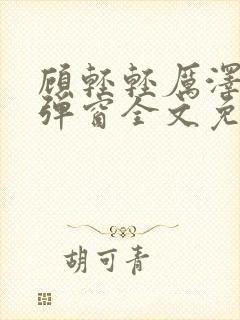 顾轻轻厉泽
弹窗全文免
胡可青